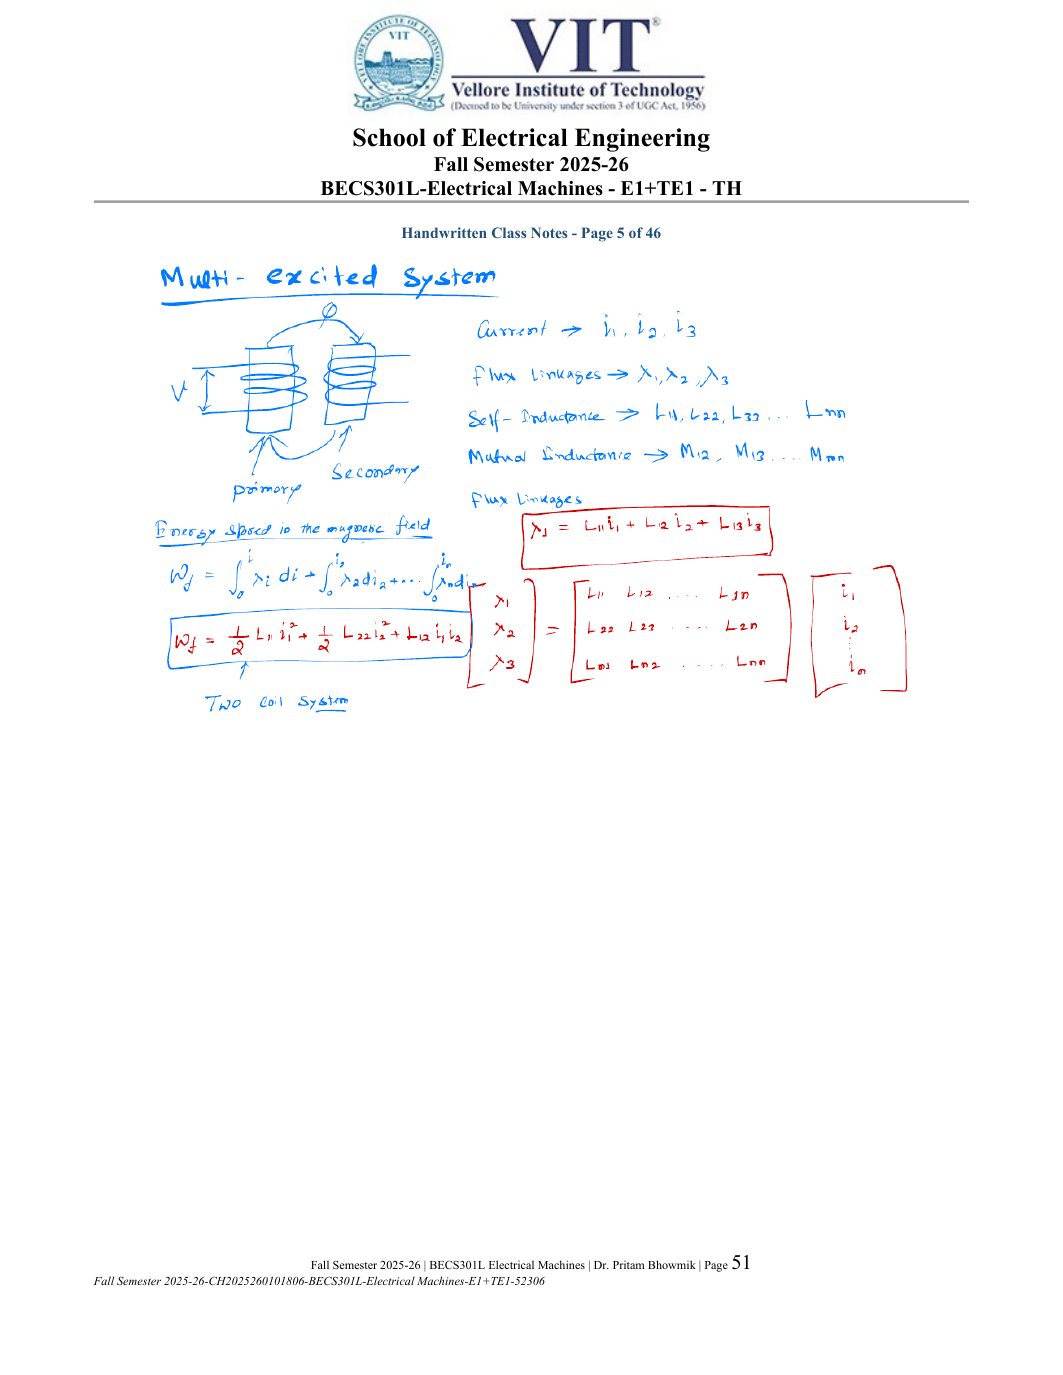 VIT
VIT®
Vellore Institute of Technology
(Deemed to be University under section 3 of UGC Act, 1956)
School of Electrical Engineering
Fall Semester 2025-26
BECS301L-Electrical Machines - E1+TE1 - TH
Handwritten Class Notes - Page 5 of 46
Multi-excited System
φ
V
Primary
Secondary
Current → i₁, i₂, i₃
Flux Linkages → λ₁, λ₂, λ₃
Self-Inductance → L₁₁, L₂₂, L₃₃ ... Lₙₙ
Mutual Inductance → M₁₂, M₁₃ .... Mₘₙ
Flux Linkages
λ₁ = L₁₁i₁ + L₁₂i₂ + L₁₃i₃
Energy in the magnetic field
W_f = ∫₀ⁱ λᵢ di + ∫₀^i₂ λ₂di₂ + ... ∫₀^iₙ λₙdiₙ
W_f = 1/2 L₁₁i₁² + 1/2 L₂₂i₂² + L₁₂i₁i₂
Two coil System
[λ₁ λ₂ λ₃] =
L₁₁ L₁₂ .... L₁ₙ
L₂₂ L₂₂ .... L₂ₙ
Lₙ₁ Lₙ₂ ..... Lₙₙ
i₁
i₂
⋮
iₙ
Fall Semester 2025-26 | BECS301L Electrical Machines | Dr. Pritam Bhowmik | Page 51
Fall Semester 2025-26-CH2025260101806-BECS301L-Electrical Machines-E1+TE1-52306